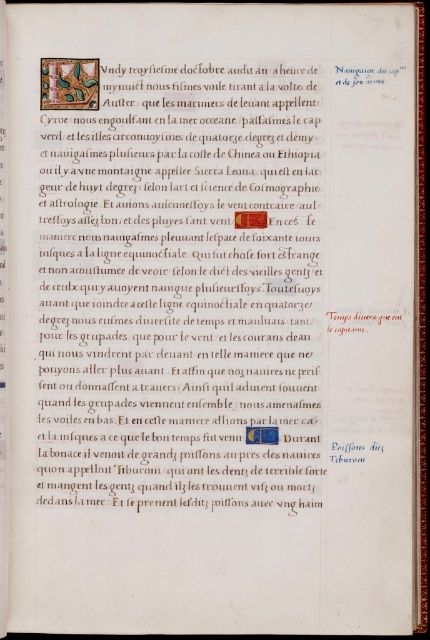 Lundy troysiesme doctobre audit an a heure de
mynuict nous fismes voile tirant a la volte de
Auster, que les mariniers de levant appellent
Cyroc. nous engoulfant en la mer oceane, passasmes le cap
verd, et les isles circonvoysines de quatorze degrez et demy.
et navigasmes plusieurs par la coste de Ghinea ou Ethiopia
ou il y a vne montaigne appellee Sierra Leona, qui est en lat
geur de huyt degrez, selon lart et science de Cosmographie
et astrologie. Et avions aulcunesfoys le vent contraire, aul
tresfoys assez bon, et des pluyes sant vent. En ceste
maniere nous navigasmes pleuvant lespace de soixante iours
iusques a la ligne equinochiale. Qui fut chose fort estrange
et non acoustumee de veoir, selon le dict des vieilles gentz et
de ceulx qui y avoyent navigue plusieursfoys. Toutesvoys
avant que ioindre a ceste ligne equinochiale en quatorze
degrez nous eusmes diversite de temps et maulvais, tant
pour les grupades, que pour le vent, et les courans deau
qui nous vindrent par devant en telle maniere que ne
pouyons aller plus avant. Et affin que noz navires ne peris
sent ou donnassent a travers (Ainsi quil advient souvent
quand les grupades viennent ensemble) nous amenasmes
les voiles en bas. Et en ceste maniere allions par la mer ca
et la iusques a ce que le bon temps fut venu. Durant
la bonace il venoit de grandz poissons au pres des navires
quon appelloit Tiburoni, qui ont les dentz de terrible sorte
et mangent les gentz quand ilz les trouvent vifz ou mortz
dedans la mer: Et se prenent lesditz poissons avec vng haim
Navigaige du cap.ne
et de son armee
Temps divers que eut
le capitaine.
Poissons ditz
Tiburoni